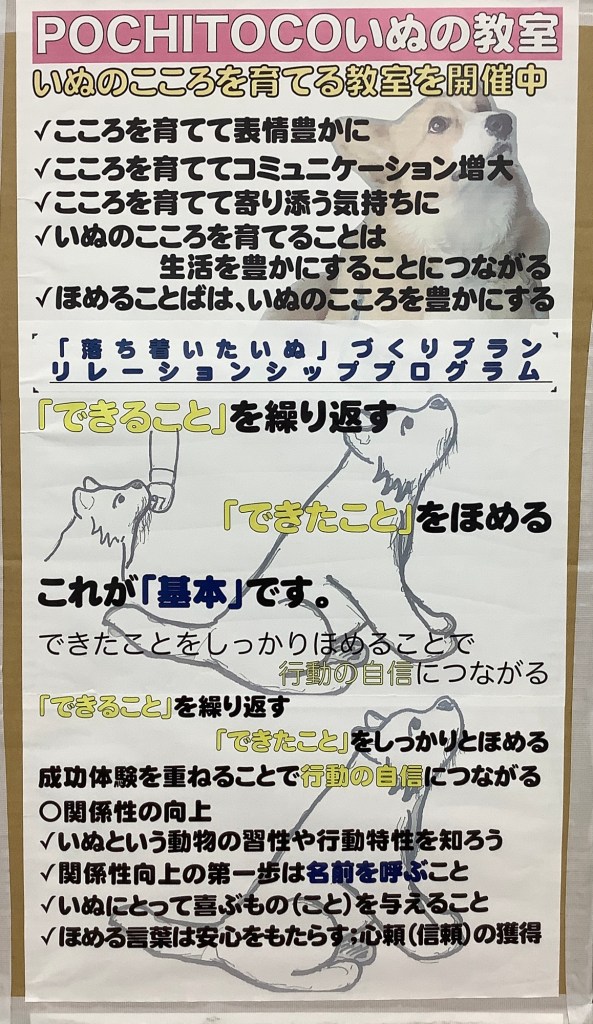 POCHITOCOいぬの教室
いぬのこころを育てる教室を開催中
✓こころを育てて表情豊かに
✓こころを育ててコミュニケーション増大
✓こころを育てて寄り添う気持ちに
✓いぬのこころを育てることは
生活を豊かにすることにつながる
✓ほめることばは、いぬのこころを豊かにする
「落ち着いたいぬ」づくりプラン
リレーションシッププログラム
「できること」を繰り返す
「できたこと」をほめる
これが「基本」です。
できたことをしっかりほめることで
行動の自信につながる
「できること」を繰り返す
「できたこと」をしっかりとほめる
成功体験を重ねることで行動の自信につながる
〇関係性の向上
✓いぬという動物の習性や行動特性を知ろう
✓関係性向上の第一歩は名前を呼ぶこと
✓いぬにとって喜ぶもの(こと)を与えること
✓ほめる言葉は安心をもたらす;心頼(信頼)の獲得